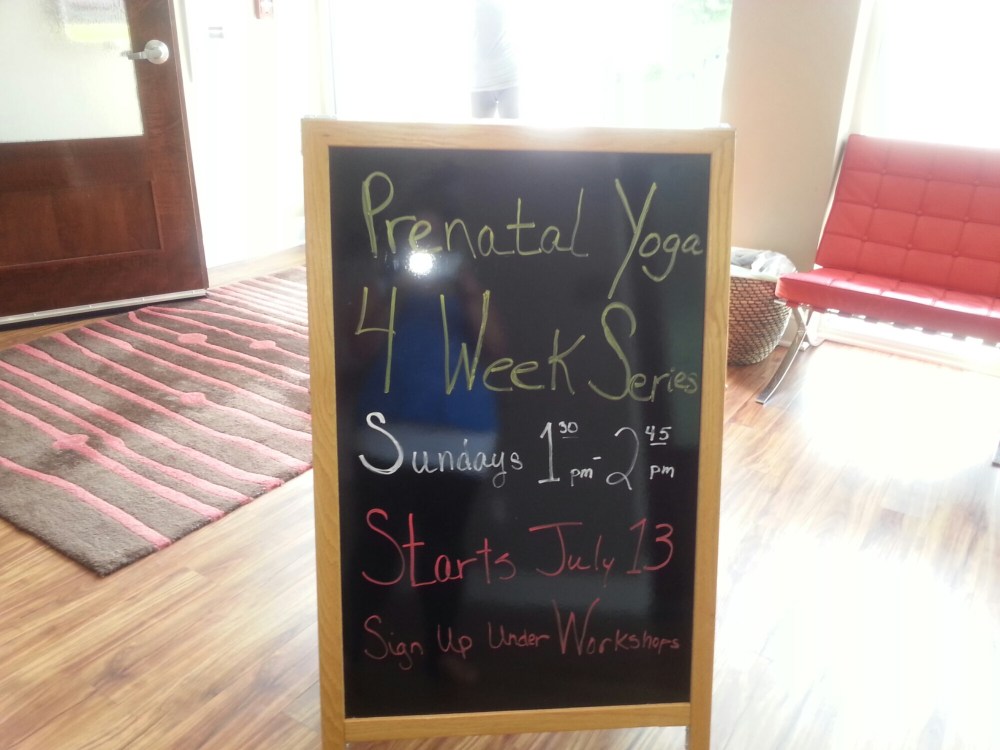 Prenatal Yoga
4 Week Series
Sundays 1 30 pm - 2 45 pm
Starts July 13
Sign Up Under Workshops